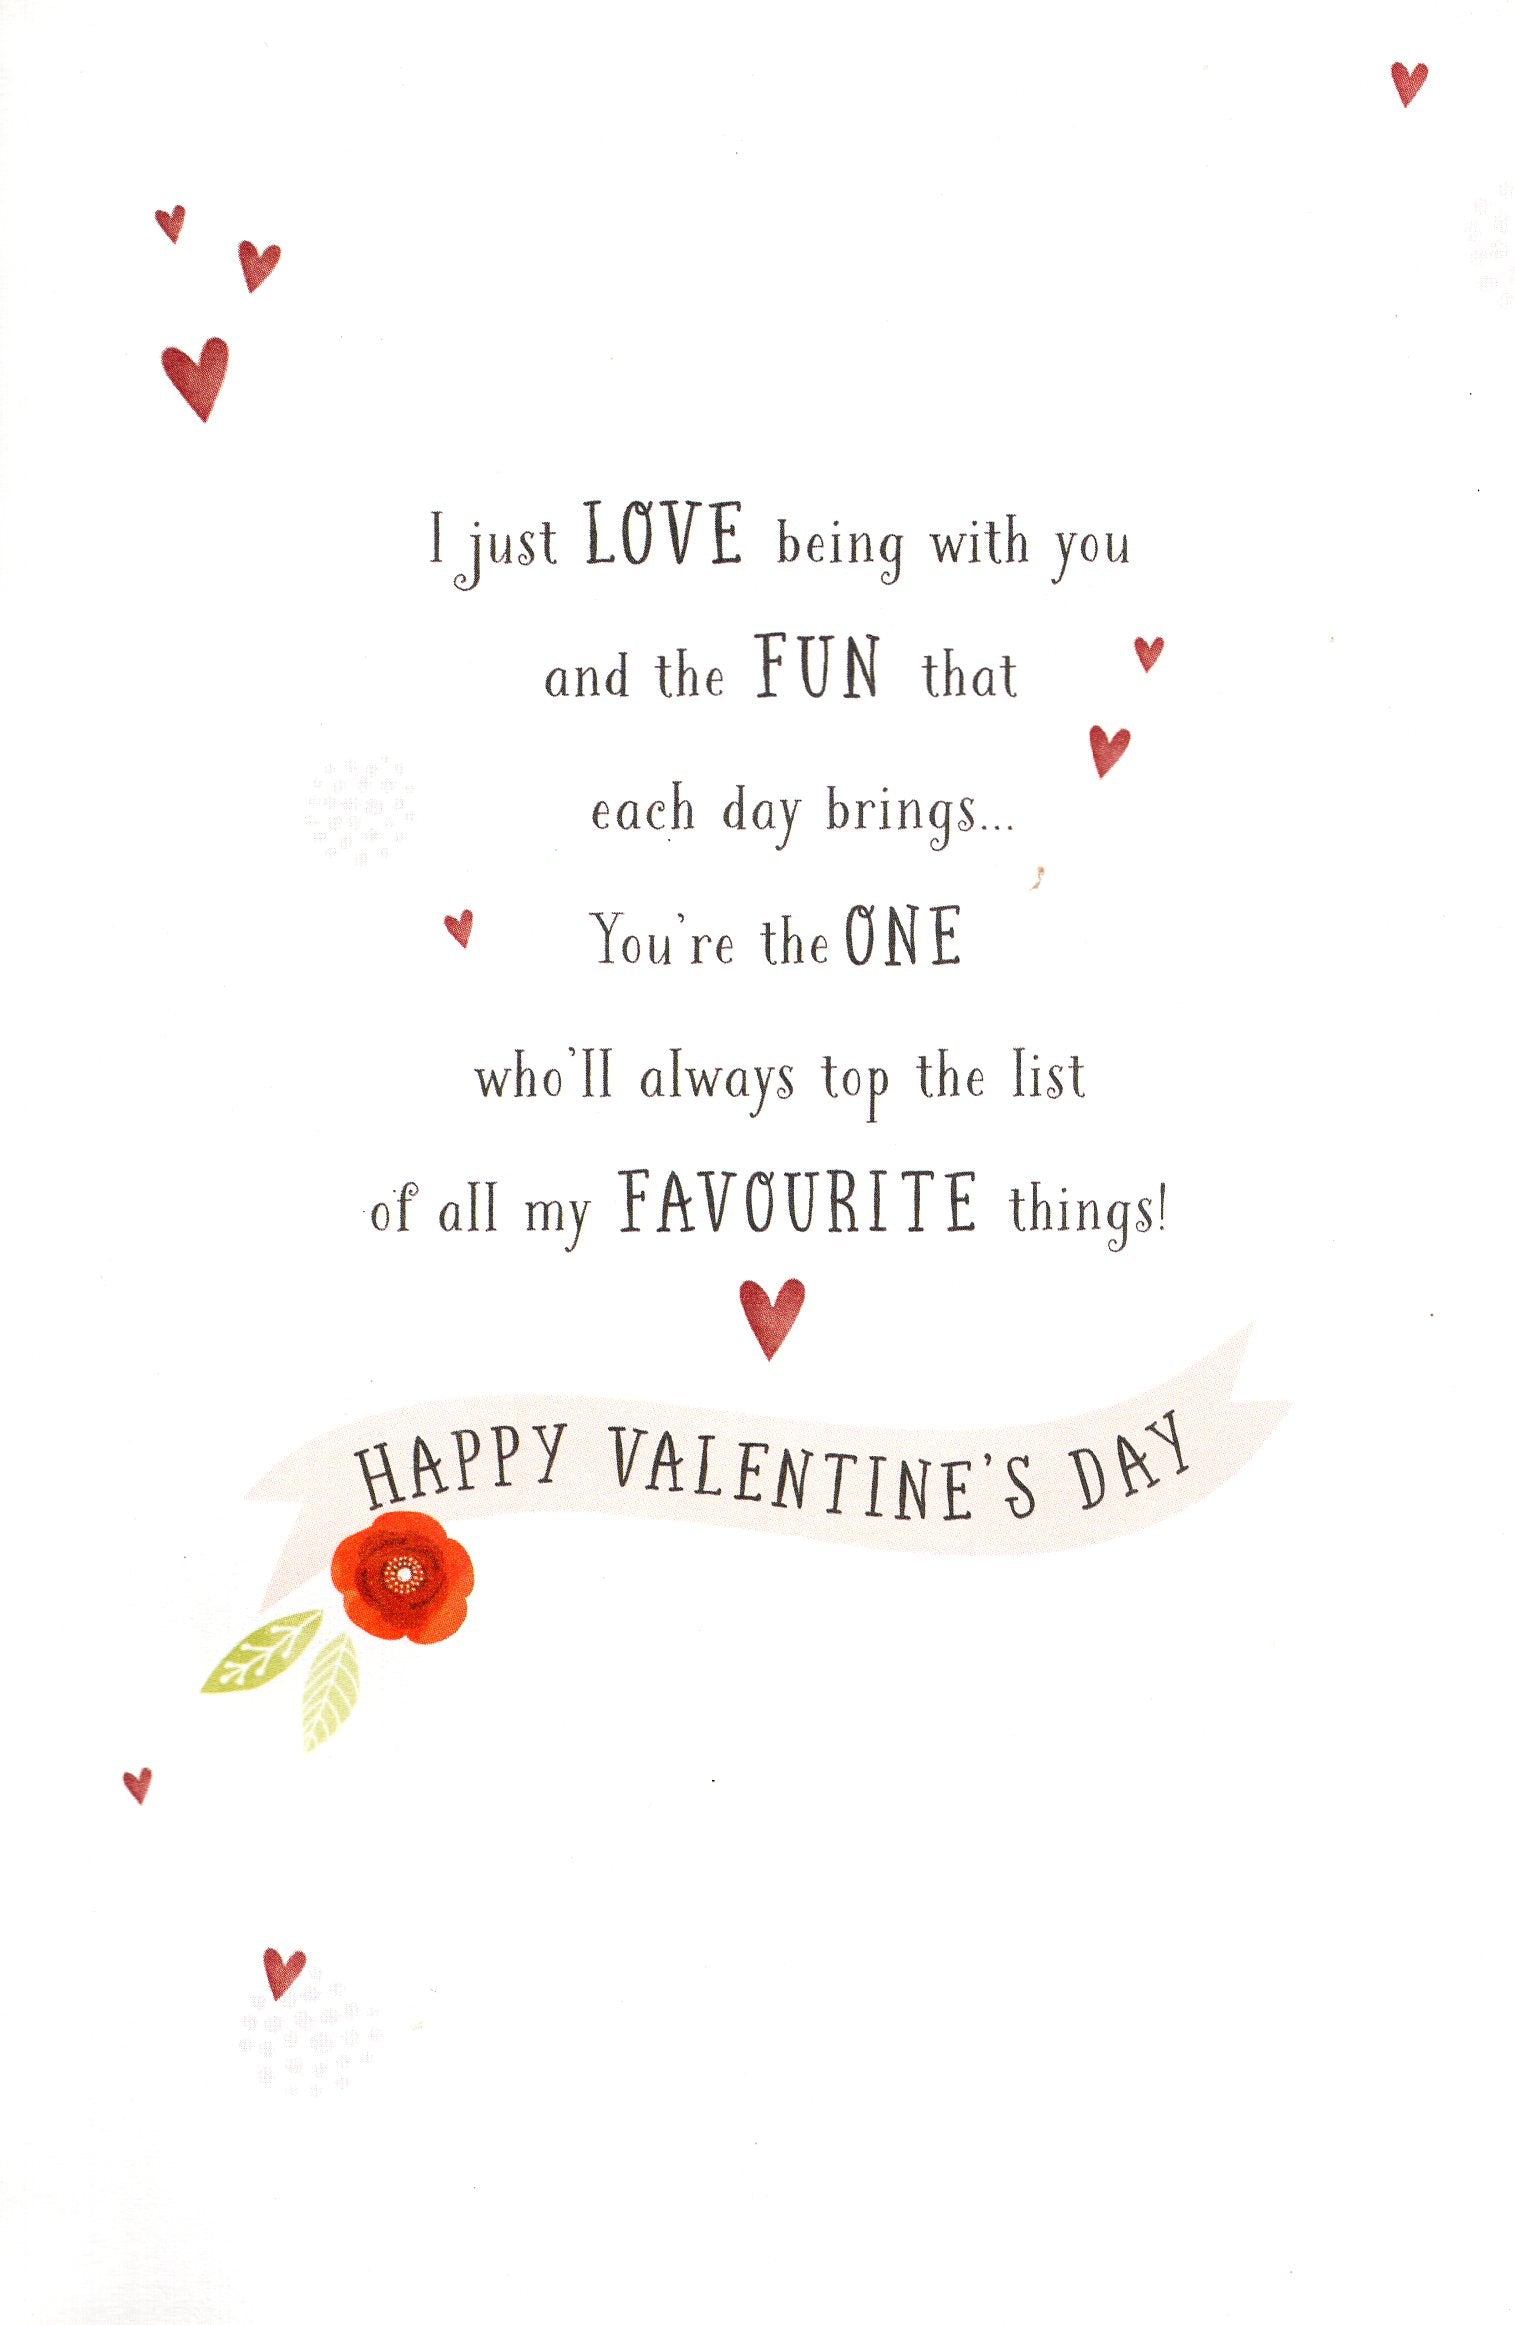 I just LOVE being with you
and the FUN that
each day brings...
You're the ONE
who'll always top the list
of all my FAVOURITE things!
HAPPY VALENTINE'S DAY